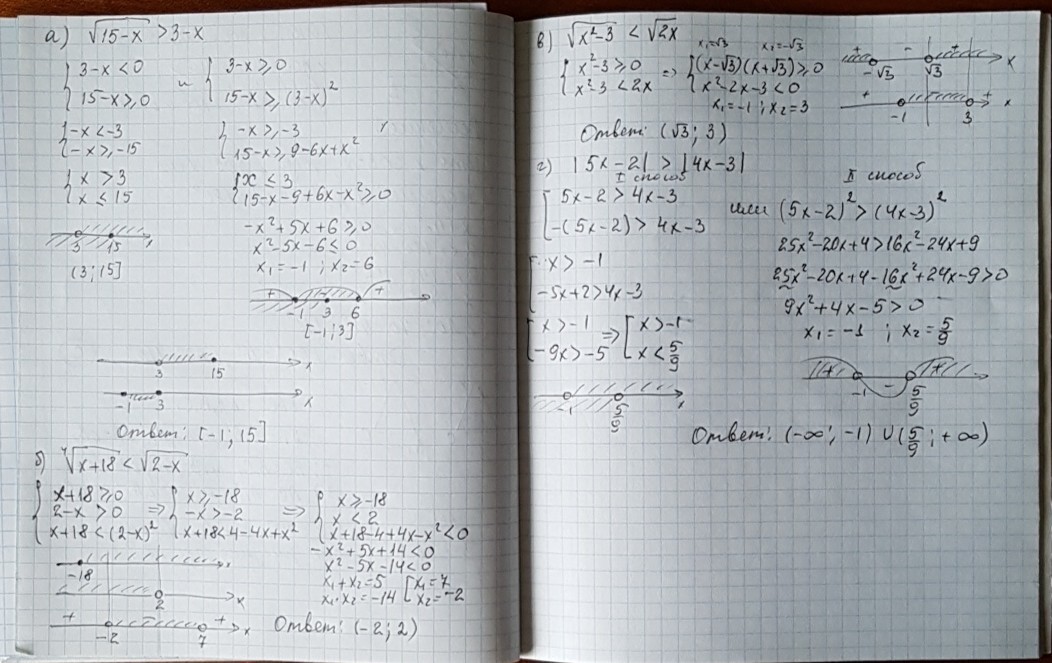 а) √(15-x) > 3-x
{ 3-x<0 и { 3-x⩾0
15-x⩾0 15-x⩾(3-x)²
{ -x<-3 { -x⩾-3
-x⩾-15 15-x⩾9-6x+x²
{ x>3 { x≤3
x≤15 15-x-9+6x-x²⩾0
-x²+5x+6⩾0
3 15
x²-5x-6≤0
(3;15] x₁=-1 ; x₂=6
+ - +
-1 3 6
[-1;3]
3 15 x
-1 3 x
Ответ: [-1; 15]
б) ⁴√(x+18) < √(2-x)
{ x+18⩾0 ⇒ { x⩾-18 ⇒ { x⩾-18
2-x>0 -x>-2 x<2
x+18<(2-x)² x+18<4-4x+x² x+18-4+4x-x²<0
-x²+5x+14<0
-18 x x²-5x-14<0
x₁+x₂=5 [ x₁=7
2 x x₁·x₂=-14 x₂=-2
+ - +
-2 7 x Ответ: (-2; 2)
в) √(x²-3) < √(2x)
x₁=√3 x₁=-√3
{ x²-3⩾0 ⇒ { (x-√3)(x+√3)⩾0
x²-3<2x x²-2x-3<0
x₁=-1 ; x₂=3
+ - +
-√3 √3 x
+ +
-1 3 x
Ответ: (√3; 3)
г) |5x-2| > |4x-3|
I способ
[ 5x-2>4x-3
-(5x-2)>4x-3
[ x>-1
-5x+2>4x-3
[ x>-1 ⇒ [ x>-1
-9x>-5 x<5/9
-1 5/9 x
II способ
или (5x-2)²>(4x-3)²
25x²-20x+4>16x²-24x+9
25x²-20x+4-16x²+24x-9>0
9x²+4x-5>0
x₁=-1 ; x₂=5/9
+ - +
-1 5/9
Ответ: (-∞; -1) ∪ (5/9; +∞)